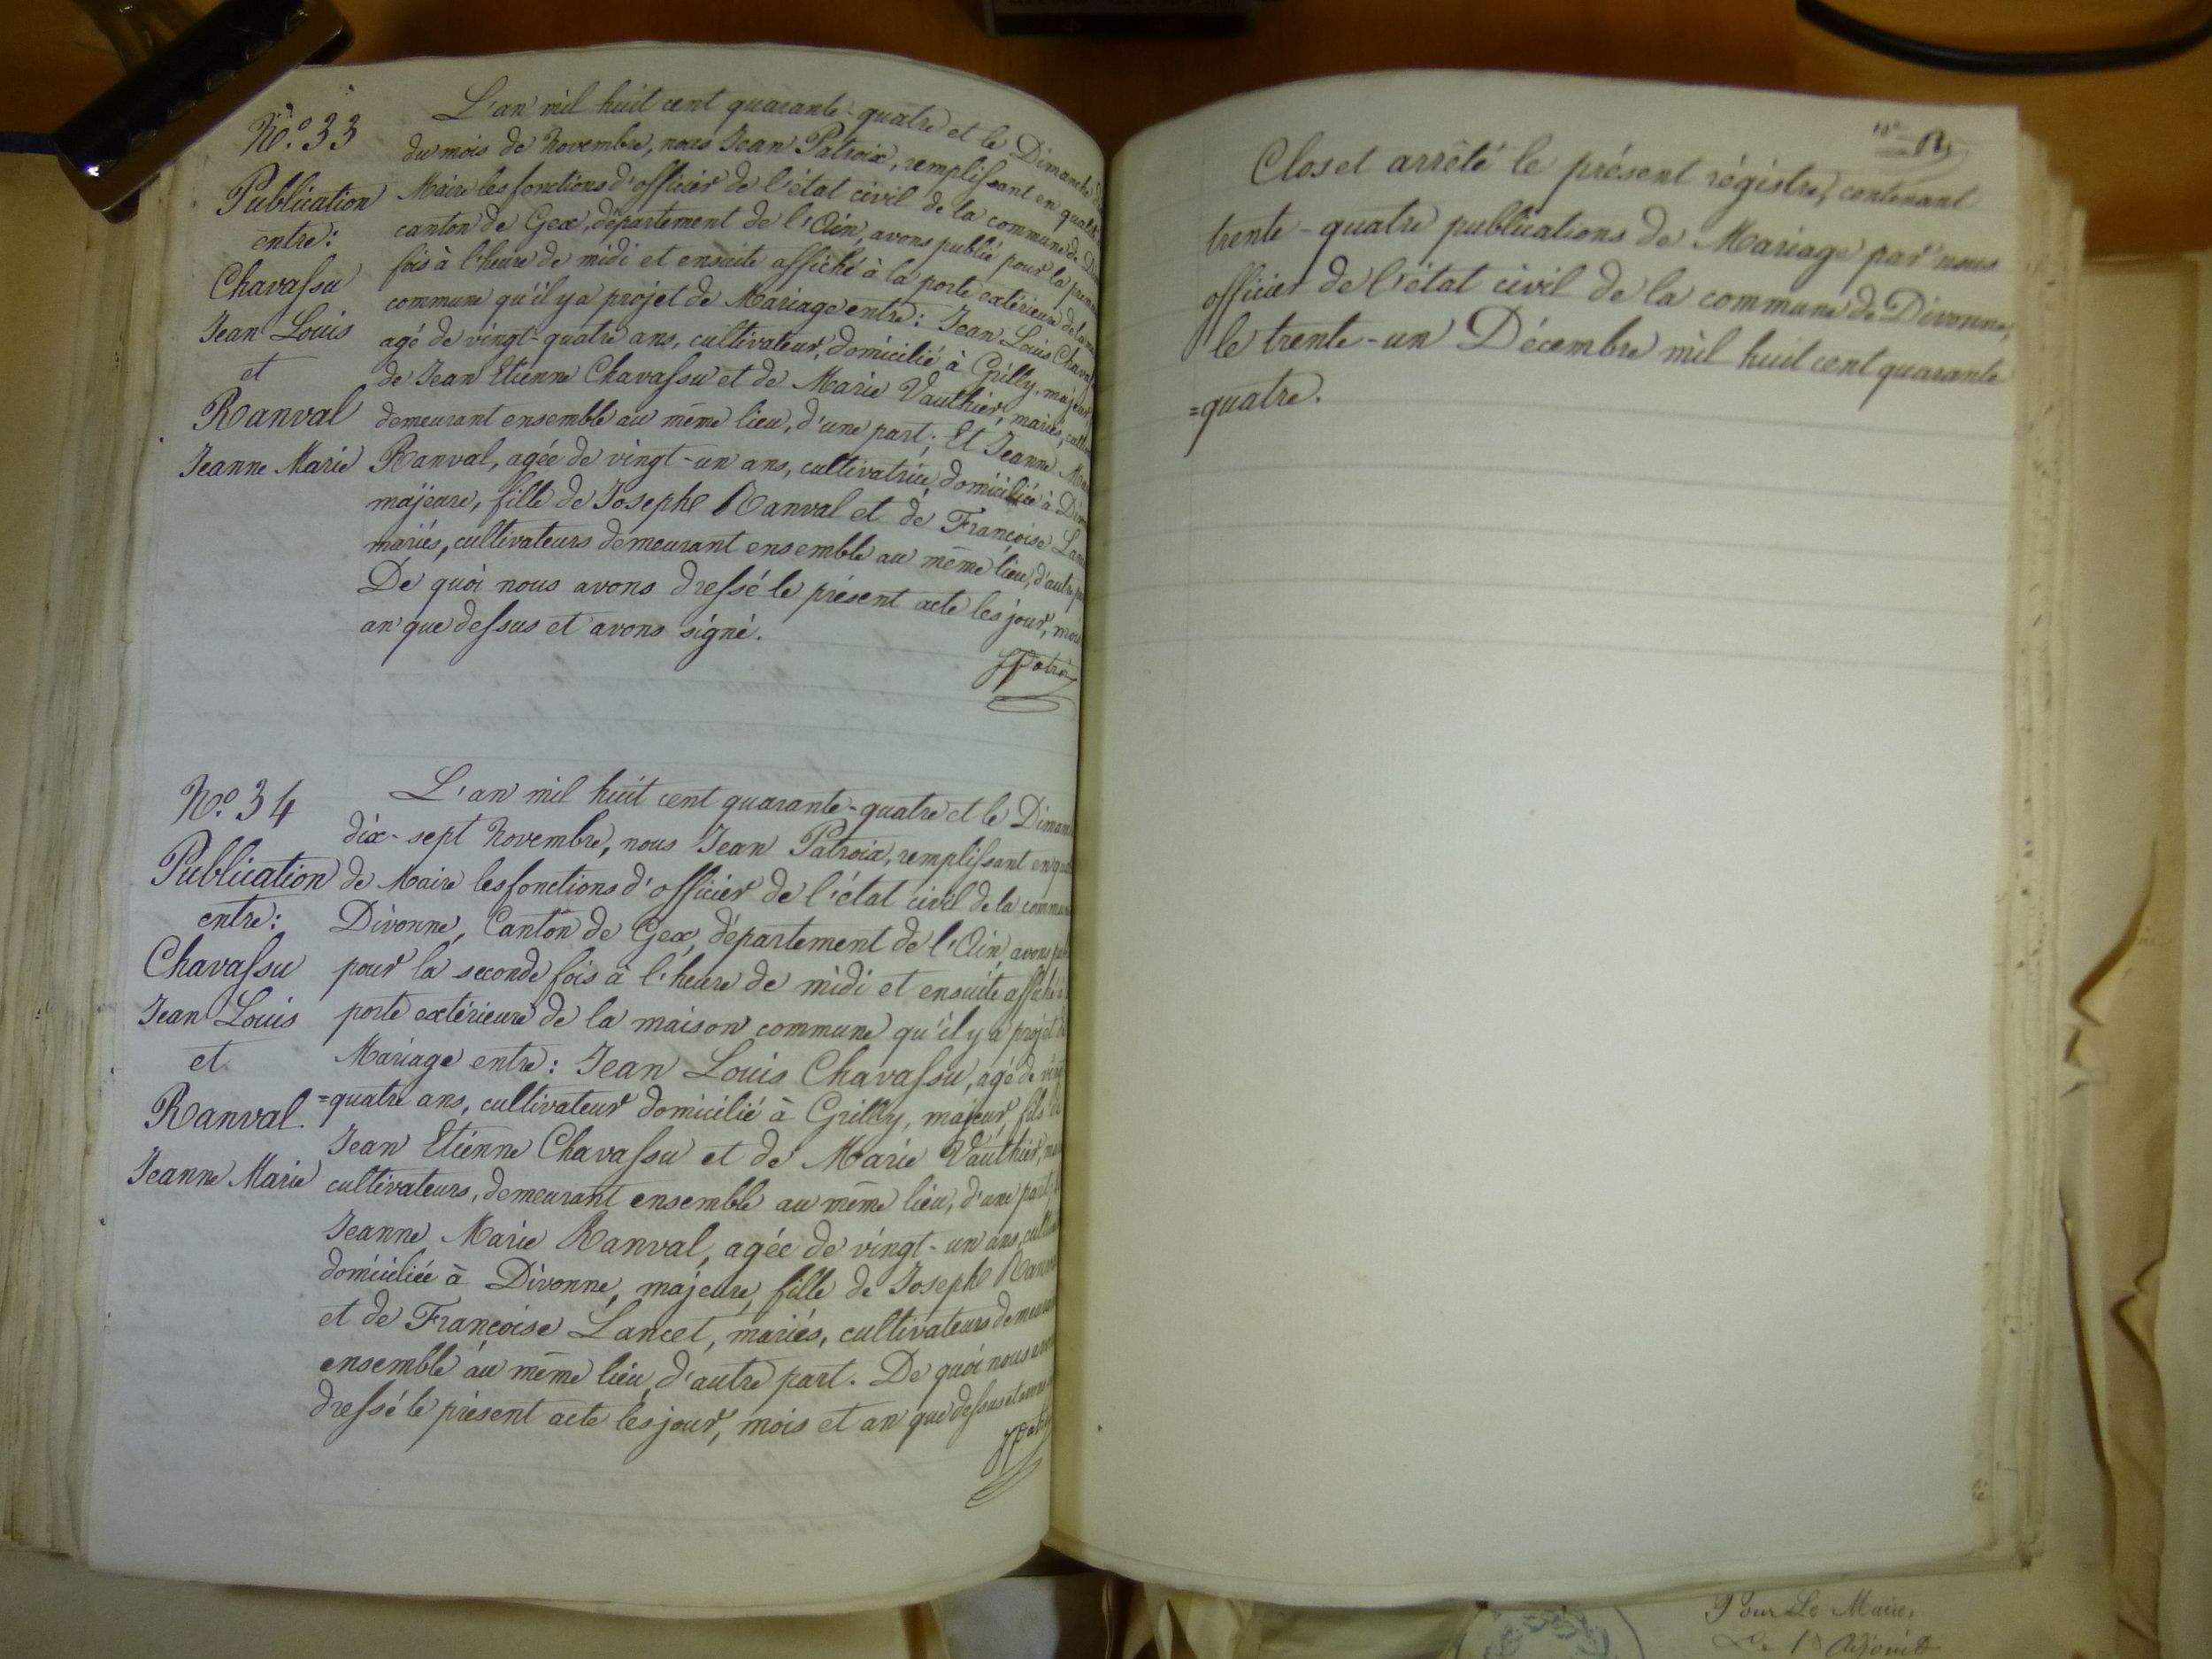 No. 33
Publication
entre:
Chavassu
Jean Louis
et
Ranval
Jeanne Marie
L'an mil huit cent quarante-quatre et le Dimanche
du mois de Novembre, nous Jean Patroix, remplissant en qualité
Maire les fonctions d'officier de l'état civil de la commune de
canton de Gex, département de l'Ain, avons publié pour la
fois à l'heure de midi et ensuite affiché à la porte extérieure de la
commune qu'il y a projet de Mariage entre: Jean Louis
agé de vingt-quatre ans, cultivateur, domicilié à Grilly, majeur,
de Jean Etienne Chavassu et de Marie Vauthier, mariés,
demeurant ensemble au même lieu, d'une part; Et Jeanne
Ranval, agée de vingt-un ans, cultivatrice, domiciliée à
majeure, fille de Joseph Ranval et de Françoise
mariés, cultivateurs demeurant ensemble au même lieu, d'autre
De quoi nous avons dressé le présent acte les jour, mois
an que dessus et avons signé.
No. 34
Publication
entre:
Chavassu
Jean Louis
et
Ranval.
Jeanne Marie
L'an mil huit cent quarante-quatre et le
dix-sept Novembre, nous Jean Patroix, remplissant en
de Maire les fonctions d'officier de l'état civil de la
Divonne, Canton de Gex, département de l'Ain, avons
pour la seconde fois à l'heure de midi et ensuite affiché à
porte extérieure de la maison commune qu'il y a projet de
Mariage entre: Jean Louis Chavassu, agé de
=quatre ans, cultivateur domicilié à Grilly, majeur, fils de
Jean Etienne Chavassu et de Marie Vauthier,
cultivateurs, demeurant ensemble au même lieu, d'une part;
Jeanne Marie Ranval, agée de vingt-un ans,
domiciliée à Divonne, majeure, fille de Joseph
et de Françoise Lancet, mariés, cultivateurs
ensemble au même lieu, d'autre part. De quoi nous
dressé le présent acte les jour, mois et an que dessus et
Clos et arrêté le présent régistre, contenant
trente-quatre publications de Mariage par nous
officier de l'état civil de la commune de Divonne,
le trente-un Décembre mil huit cent quarante
=quatre.
Pour Le Maire,